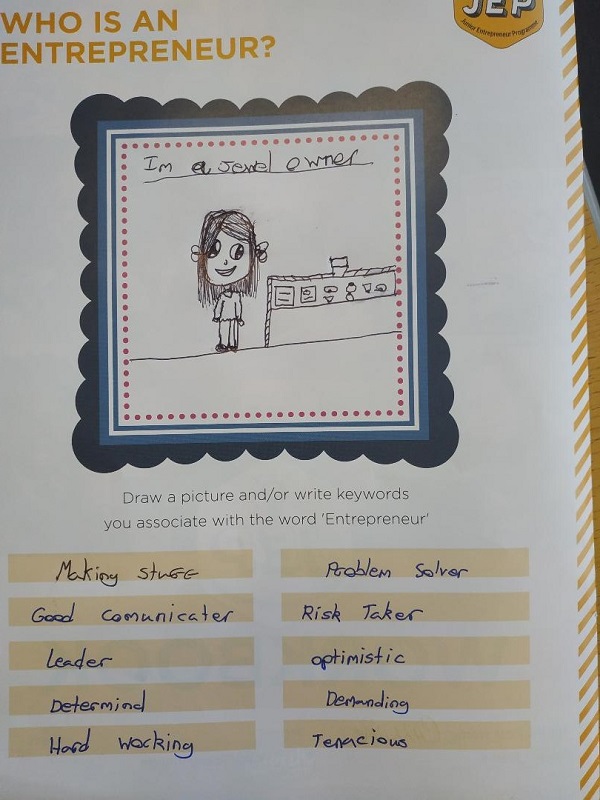 WHO IS AN
ENTREPRENEUR?
JEP
Junior Entrepreneur Programme
Im a Jewel owner
Draw a picture and/or write keywords
you associate with the word 'Entrepreneur'
Making stuff
Problem Solver
Good comunicater
Risk Taker
Leader
optimistic
Determind
Demanding
Hard Working
Tenacious